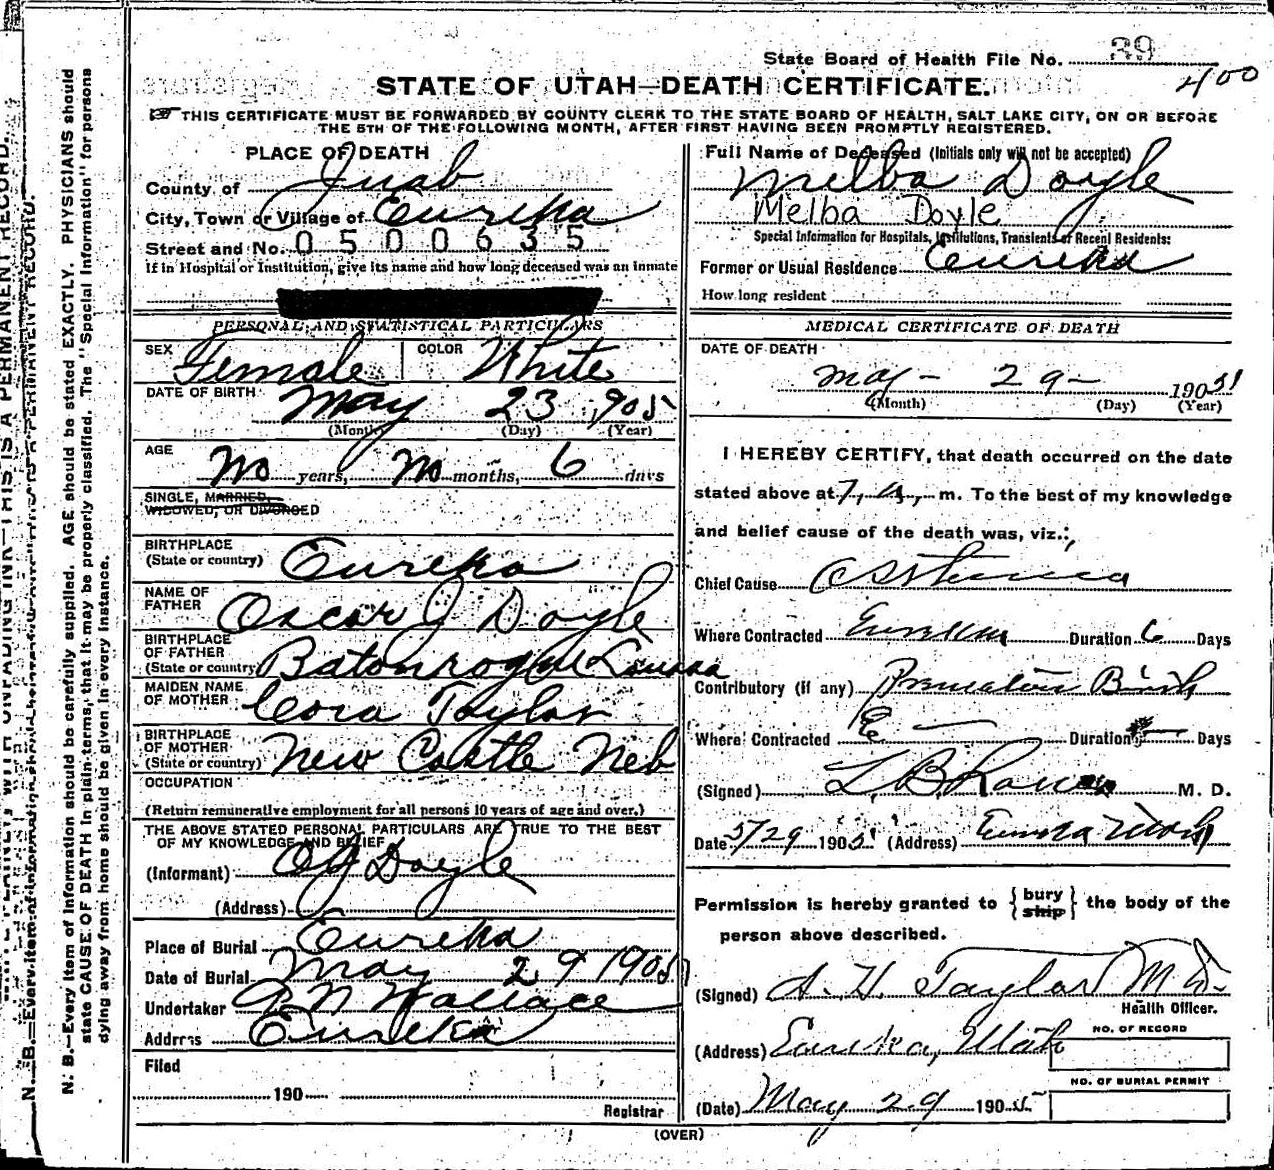 State Board of Health File No. 39
400
STATE OF UTAH—DEATH CERTIFICATE.
THIS CERTIFICATE MUST BE FORWARDED BY COUNTY CLERK TO THE STATE BOARD OF HEALTH, SALT LAKE CITY, ON OR BEFORE
THE 5TH OF THE FOLLOWING MONTH, AFTER FIRST HAVING BEEN PROMPTLY REGISTERED.
PLACE OF DEATH
County of Juab
City, Town or Village of Eureka
Street and No. 0500635
If in Hospital or Institution, give its name and how long deceased was an inmate
PERSONAL AND STATISTICAL PARTICULARS
SEX Female COLOR White
DATE OF BIRTH May 23, 1905
(Month) (Day) (Year)
AGE No years, No months, 6 days
SINGLE, MARRIED,
WIDOWED, OR DIVORCED
BIRTHPLACE
(State or country) Eureka
NAME OF
FATHER Oscar J Doyle
BIRTHPLACE
OF FATHER
(State or country) Batonrogue
MAIDEN NAME
OF MOTHER Cora Taylor
BIRTHPLACE
OF MOTHER
(State or country) New Castle Neb
OCCUPATION
(Return remunerative employment for all persons 10 years of age and over.)
THE ABOVE STATED PERSONAL PARTICULARS ARE TRUE TO THE BEST
OF MY KNOWLEDGE AND BELIEF
(Informant) O J Doyle
(Address)
Place of Burial Eureka
Date of Burial May 29 1905
Undertaker Wallace
Address Eureka
Filed
190
Registrar
Full Name of Deceased (Initials only will not be accepted)
Melba Doyle
Melba Doyle
Special Information for Hospitals, Institutions, Transients or Recent Residents:
Former or Usual Residence Eureka
How long resident
MEDICAL CERTIFICATE OF DEATH
DATE OF DEATH
May - 29 - 1905
(Month) (Day) (Year)
I HEREBY CERTIFY, that death occurred on the date
stated above at 7, a, m. To the best of my knowledge
and belief cause of the death was, viz.:
Chief Cause Asthenia
Where Contracted Eureka Duration 6 Days
Contributory (if any) Premature Birth
Where Contracted E Duration Days
(Signed) M. D.
Date 5/29 1905 (Address) Eureka Utah
Permission is hereby granted to {bury ship} the body of the
person above described.
(Signed) A. H. Taylor M D.
Health Officer.
(Address) Eureka, Utah
NO. OF RECORD
NO. OF BURIAL PERMIT
(Date) May 29 1905
(OVER)
N. B.—Every item of information should be carefully supplied. AGE should be stated EXACTLY. PHYSICIANS should
state CAUSE OF DEATH in plain terms, that it may be properly classified. The "Special Information" for persons
dying away from home should be given in every instance.